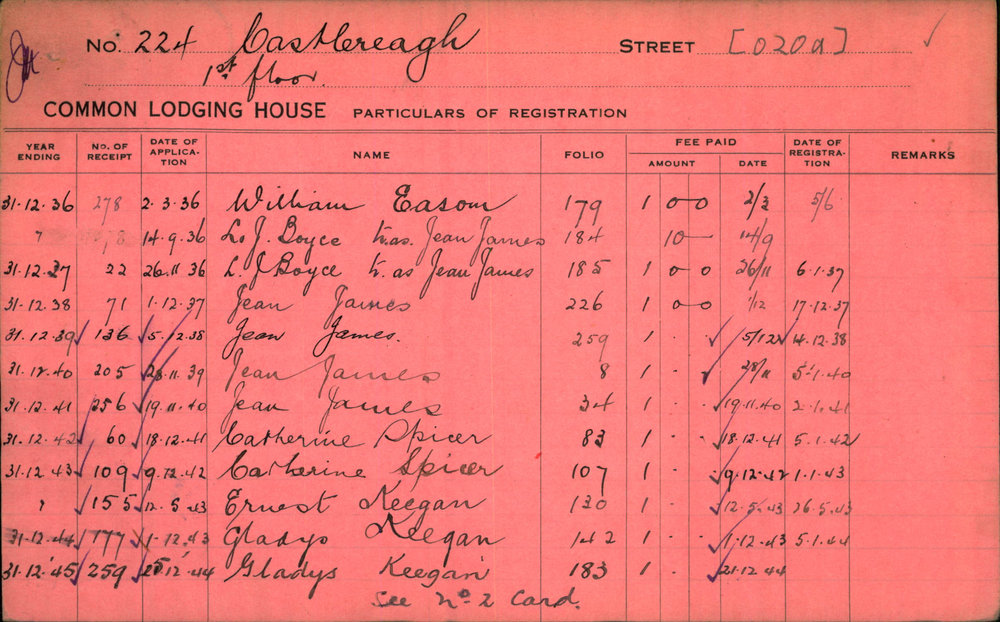 No. 224 Castlereagh STREET [020a]
1st floor.
COMMON LODGING HOUSE PARTICULARS OF REGISTRATION
YEAR ENDING NO. OF RECEIPT DATE OF APPLICA-TION NAME FOLIO FEE PAID AMOUNT DATE DATE OF REGISTRA-TION REMARKS
31.12.36 278 2.3.36 William Eason 179 1 0 0 2/3 5/6
" 14.9.36 L. J. Boyce t. as. Jean James 184 10 — 14/9
31.12.37 22 26.11.36 L. J Boyce t. as Jean James 185 1 0 0 26/11 6.1.37
31.12.38 71 1.12.37 Jean James 226 1 0 0 1/12 17.12.37
31.12.39 136 5.12.38 Jean James. 259 1 . 5/12 14.12.38
31.12.40 205 28.11.39 Jean James 8 1 . . 28/11 5.1.40
31.12.41 256 19.11.40 Jean James 34 1 . . 19.11.40 2.1.41
31.12.42 60 18.12.41 Catherine Spicer 83 1 . . 18.12.41 5.1.42
31.12.43 109 9.12.42 Catherine Spicer 107 1 . . 9.12.42 1.1.43
" 155 12.5.43 Ernest Keegan 130 1 . . 12.5.43 26.5.43
31.12.44 177 1.12.43 Gladys Keegan 142 1 . . 1.12.43 5.1.44
31.12.45 259 12.44 Gladys Keegan 183 1 . . 21.12.44
See No. 2 Card.